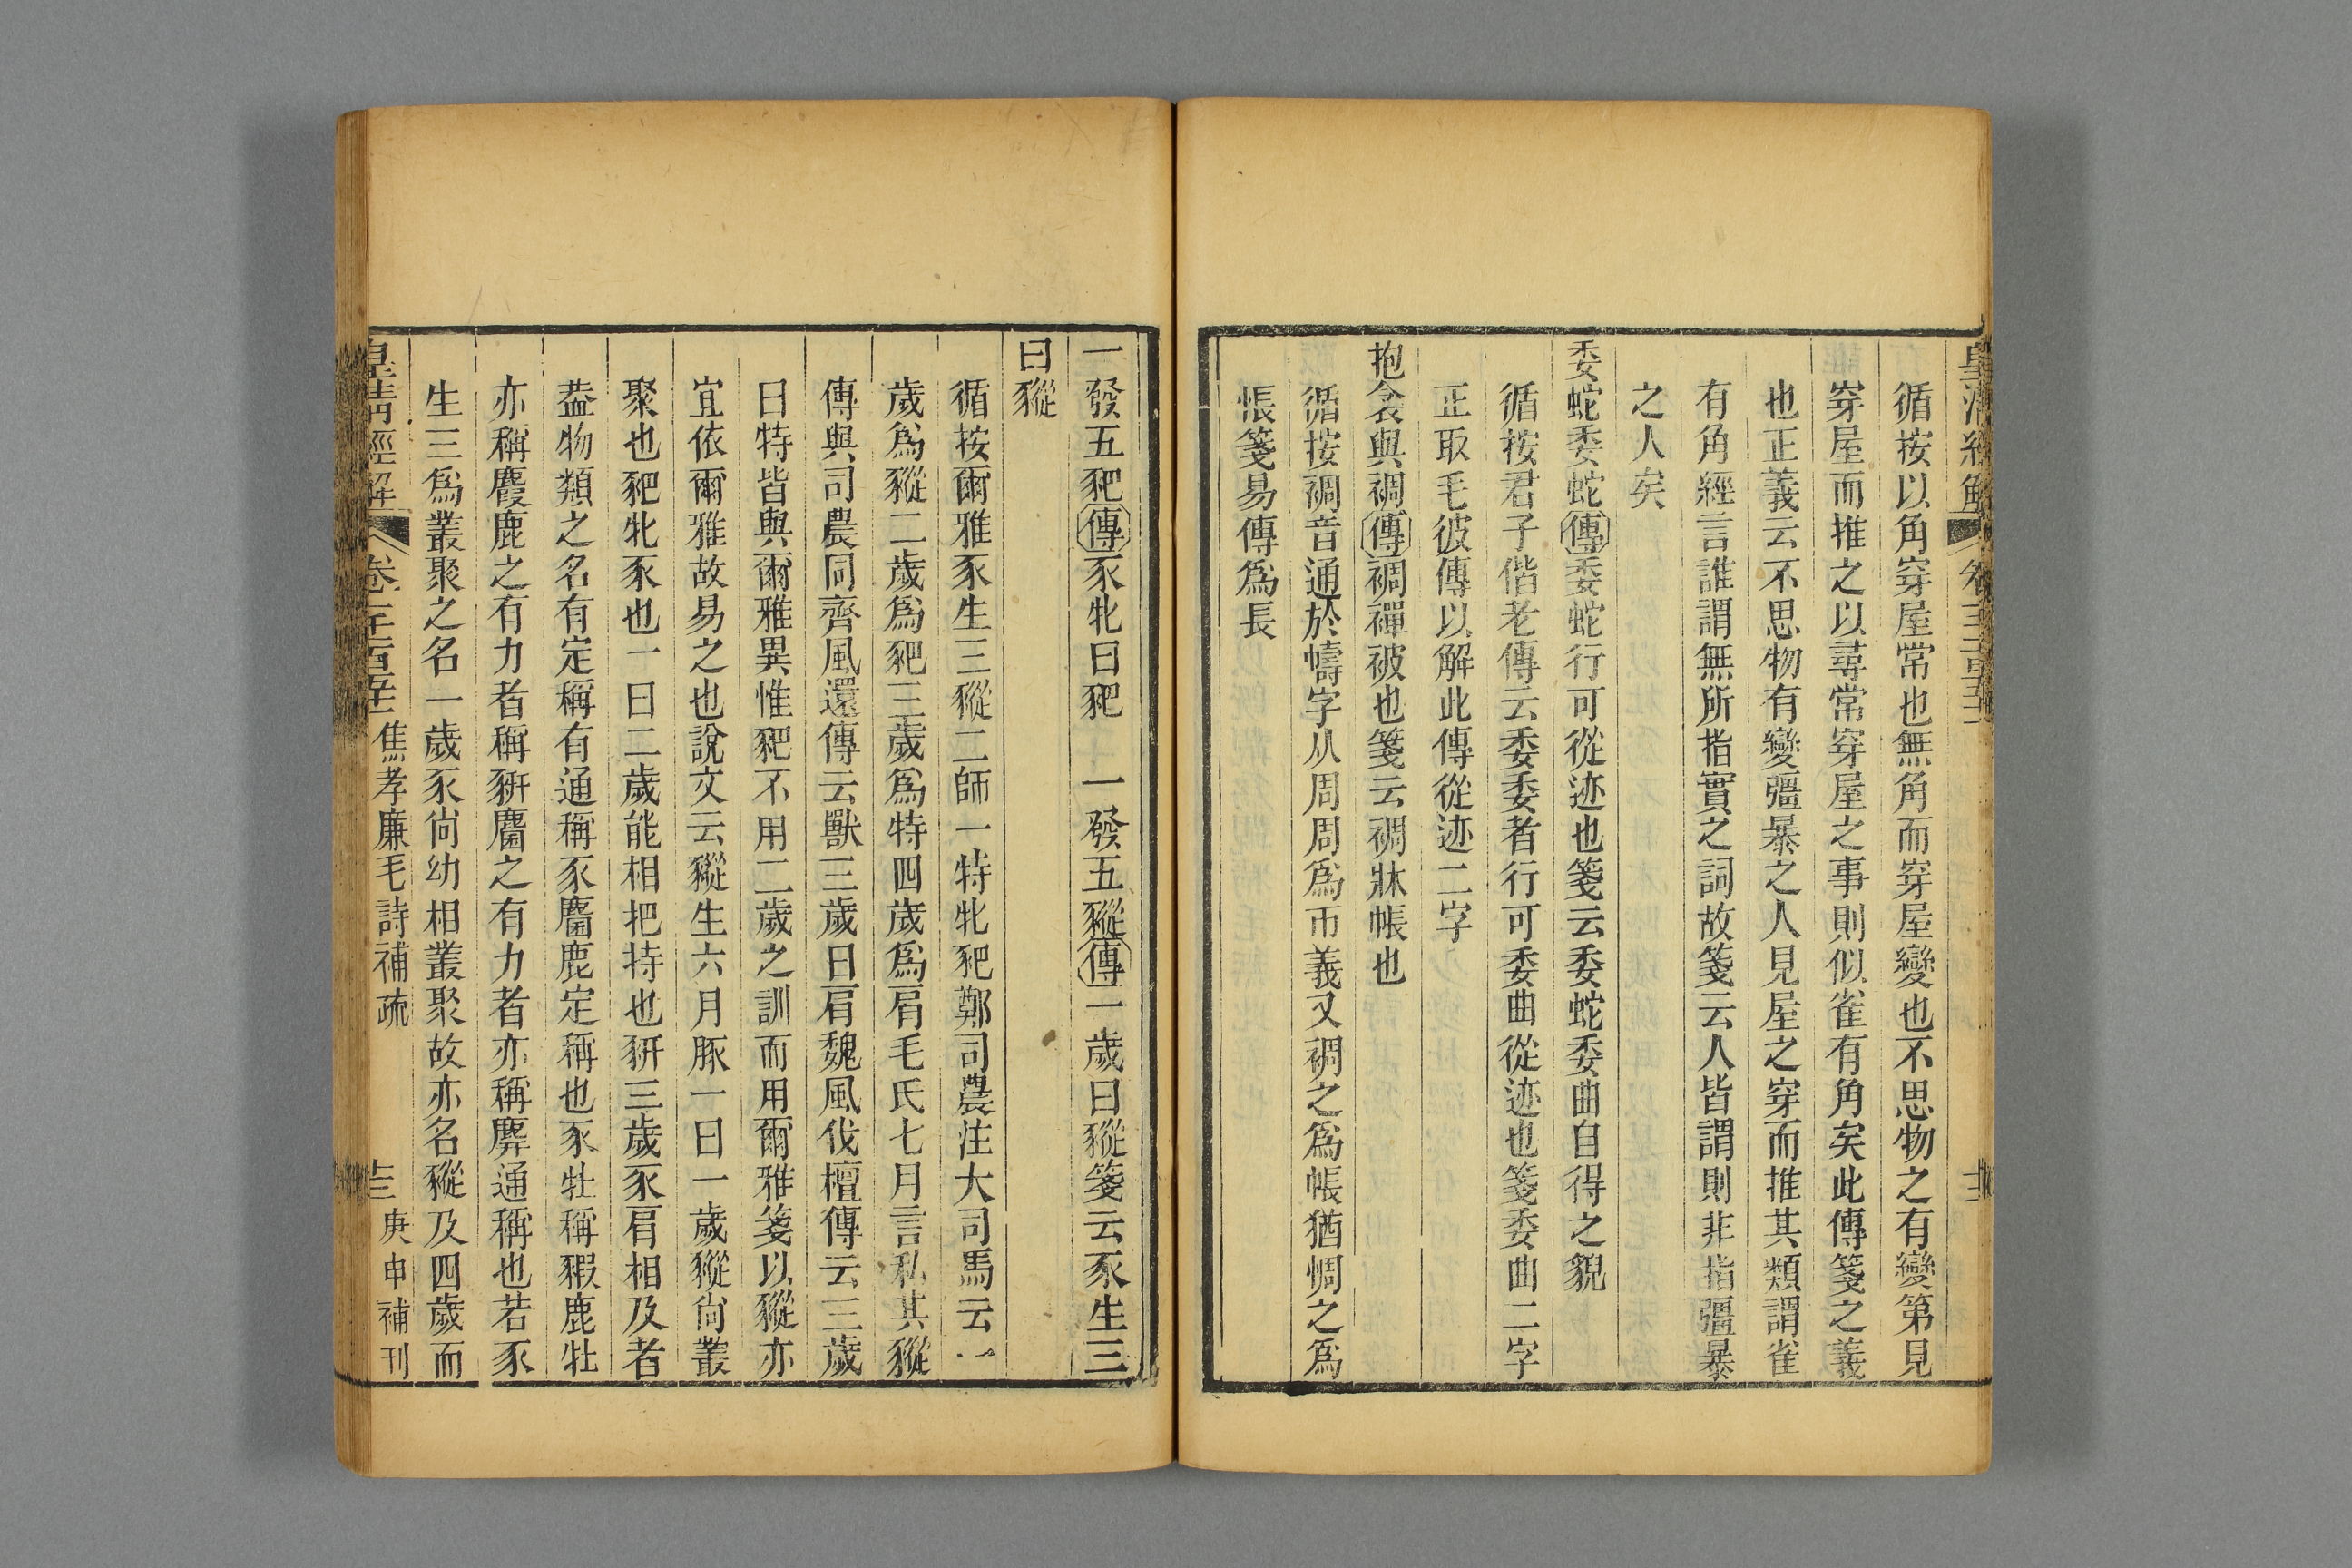 循按以角穿屋常也無角而穿屋變也不思物之有變第見
穿屋而推之以尋常穿屋之事則似雀有角矣此傳箋之義
也正義云不思物有變彊暴之人見屋之穿而推其類謂雀
有角經言誰謂無所指實之詞故箋云人皆謂則非指彊暴
之人矣
委蛇委蛇傳委蛇行可從迹也箋云委蛇委曲自得之貌
循按君子偕老傳云委委者行可委曲從迹也箋委曲二字
正取毛彼傳以解此傳從迹二字
抱衾與裯傳裯襌被也箋云裯牀帳也
循按裯音通於幬字从周周爲帀義又裯之爲帳猶惆之爲
悵箋易傳爲長
一發五豝傳豕牝曰豝　一發五豵傳一歲曰豵箋云豕生三
曰豵
循按爾雅豕生三豵二師一特牝豝鄭司農注大司馬云一
歲爲豵二歲爲豝三歲爲特四歲爲肩毛氏七月言私其豵
傳與司農同齊風還傳云獸三歲曰肩魏風伐檀傳云三歲
曰特皆與爾雅異惟豝不用二歲之訓而用爾雅箋以豵亦
宜依爾雅故易之也說文云豵生六月豚一曰一歲豵尙叢
聚也豝牝豕也一曰二歲能相把持也豜三歲豕肩相及者
葢物類之名有定稱有通稱豕麕鹿定稱也豕牡稱豭鹿牡
亦稱麚鹿之有力者稱豜麕之有力者亦稱麉通稱也若豕
生三爲叢聚之名一歲豕尙幼相叢聚故亦名豵及四歲而
皇淸經解　卷一千一百五十一　焦孝廉毛詩補疏　十三　庚申補刊